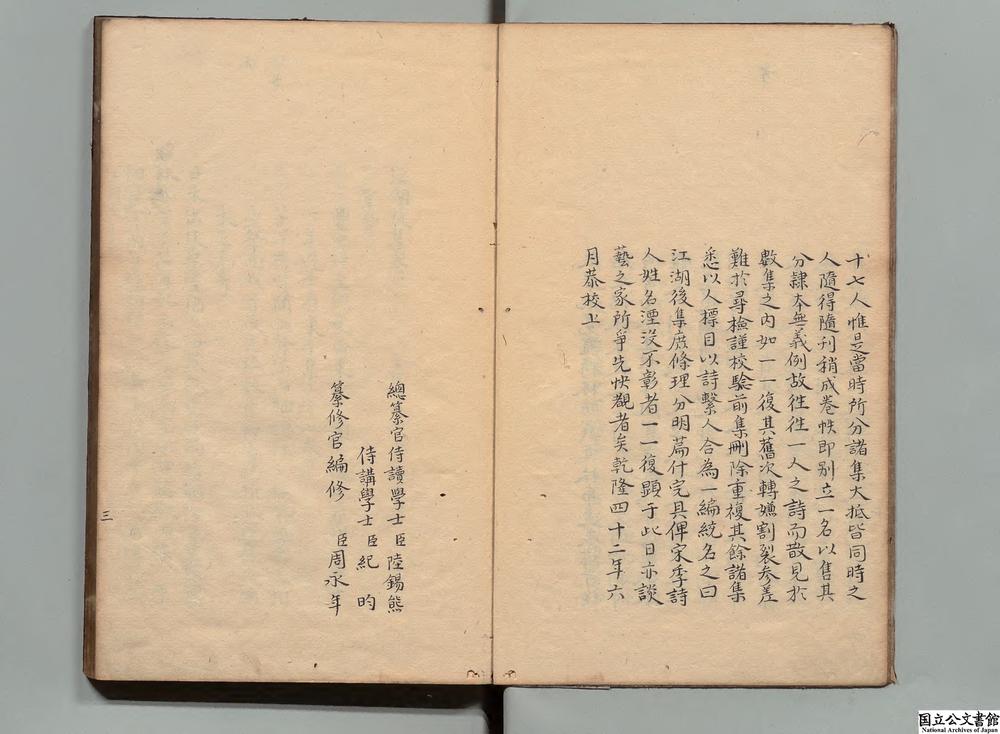 十七人惟是當時所分諸集大抵皆同時之
人隨得隨刊稍成卷帙即别立一名以售其
分隷本無義例故往往一人之詩而散見於
數集之内如一一復其舊次轉嫌割裂參差
難於尋檢謹校驗前集刪除重複其餘諸集
悉以人標目以詩繫人合為一編統名之曰
江湖後集庶條理分明篇什完具俾宋季詩
人姓名湮没不彰者一一復顯于此日亦談
藝之家所爭先快覩者矣乾隆四十二年六
月恭校上
總纂官侍讀學士臣陸錫熊
侍講學士臣紀昀
纂修官編修臣周永年
三
国立公文書館
National Archives of Japan